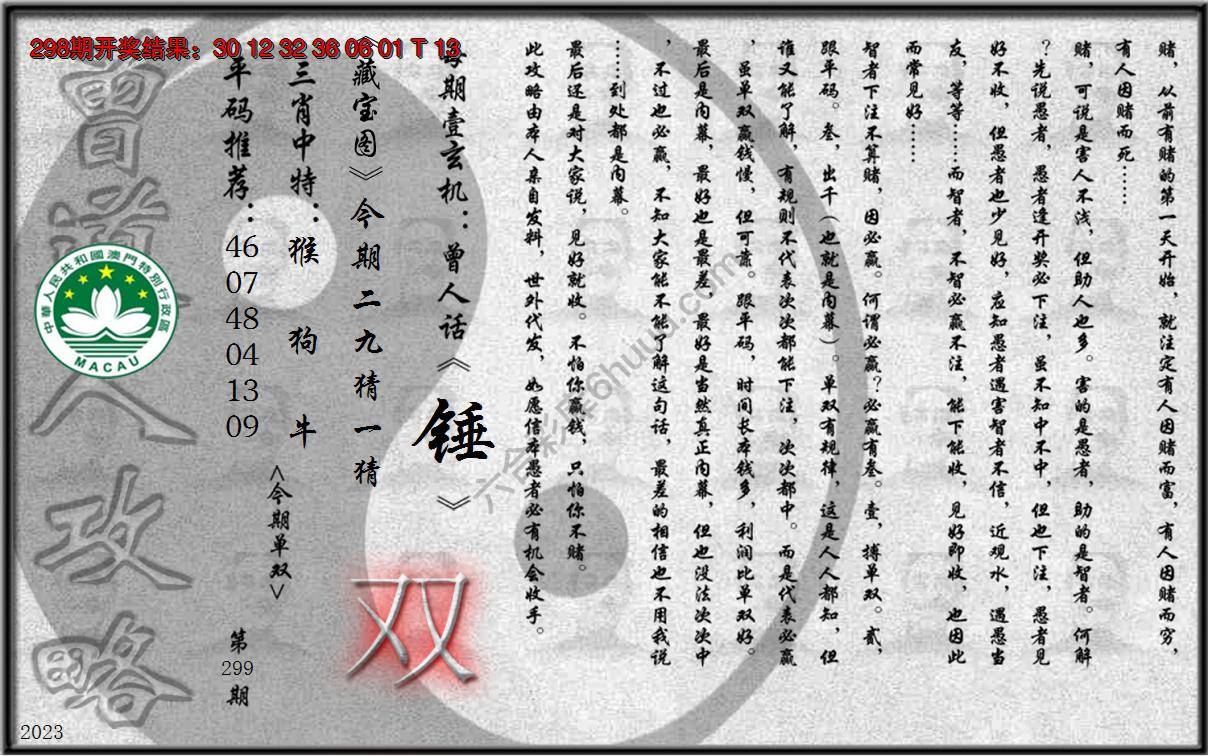 298期开奖结果：30 12 32 36 06 01 T 13
赌，从前有赌的第一天开始，就注定有人因赌而富，有人因赌而穷，
有人因赌而死……
赌，可说是害人不浅，但助人也多。害的是愚者，助的是智者。何解
？先说愚者，愚者逢开奖必下注，虽不知中不中，但也下注，愚者见
好不收，但愚者也少见好，应知愚者遇害智者不信，近观水，遇愚当
友，等等……而智者，不智必赢不注，能下能收，见好即收，也因此
而常见好……
智者下注不算赌，因必赢。何谓必赢？必赢有叁。壹，搏单双。贰，
跟平码。叁，出千（也就是内幕）。单双有规律，这是人人都知，但
谁又能了解，有规则不代表次次都能下注，次次都中。而是代表必赢
，虽单双赢钱慢，但可靠。跟平码，时间长本钱多，利润比单双好。
最后是内幕，最好也是最差，最好是当然真正内幕，但也没法次次中
，不过也必赢，不知大家能不能了解这句话，最差的相信也不用我说
……到处都是内幕。
最后还是对大家说，见好就收。不怕你赢钱，只怕你不赌。
此攻略由本人亲自发料，世外代发，如愿信本愚者必有机会收手。
每期壹玄机：曾人话《锤》
《藏宝图》今期二九猜一猜
双
三肖中特：猴 狗 牛
<今期单双>
平码推荐：46 07 48 04 13 09
第299期
曾道人攻略
中華人民共和國澳門特別行政區
MACAU
六合彩库6huuu.com
2023